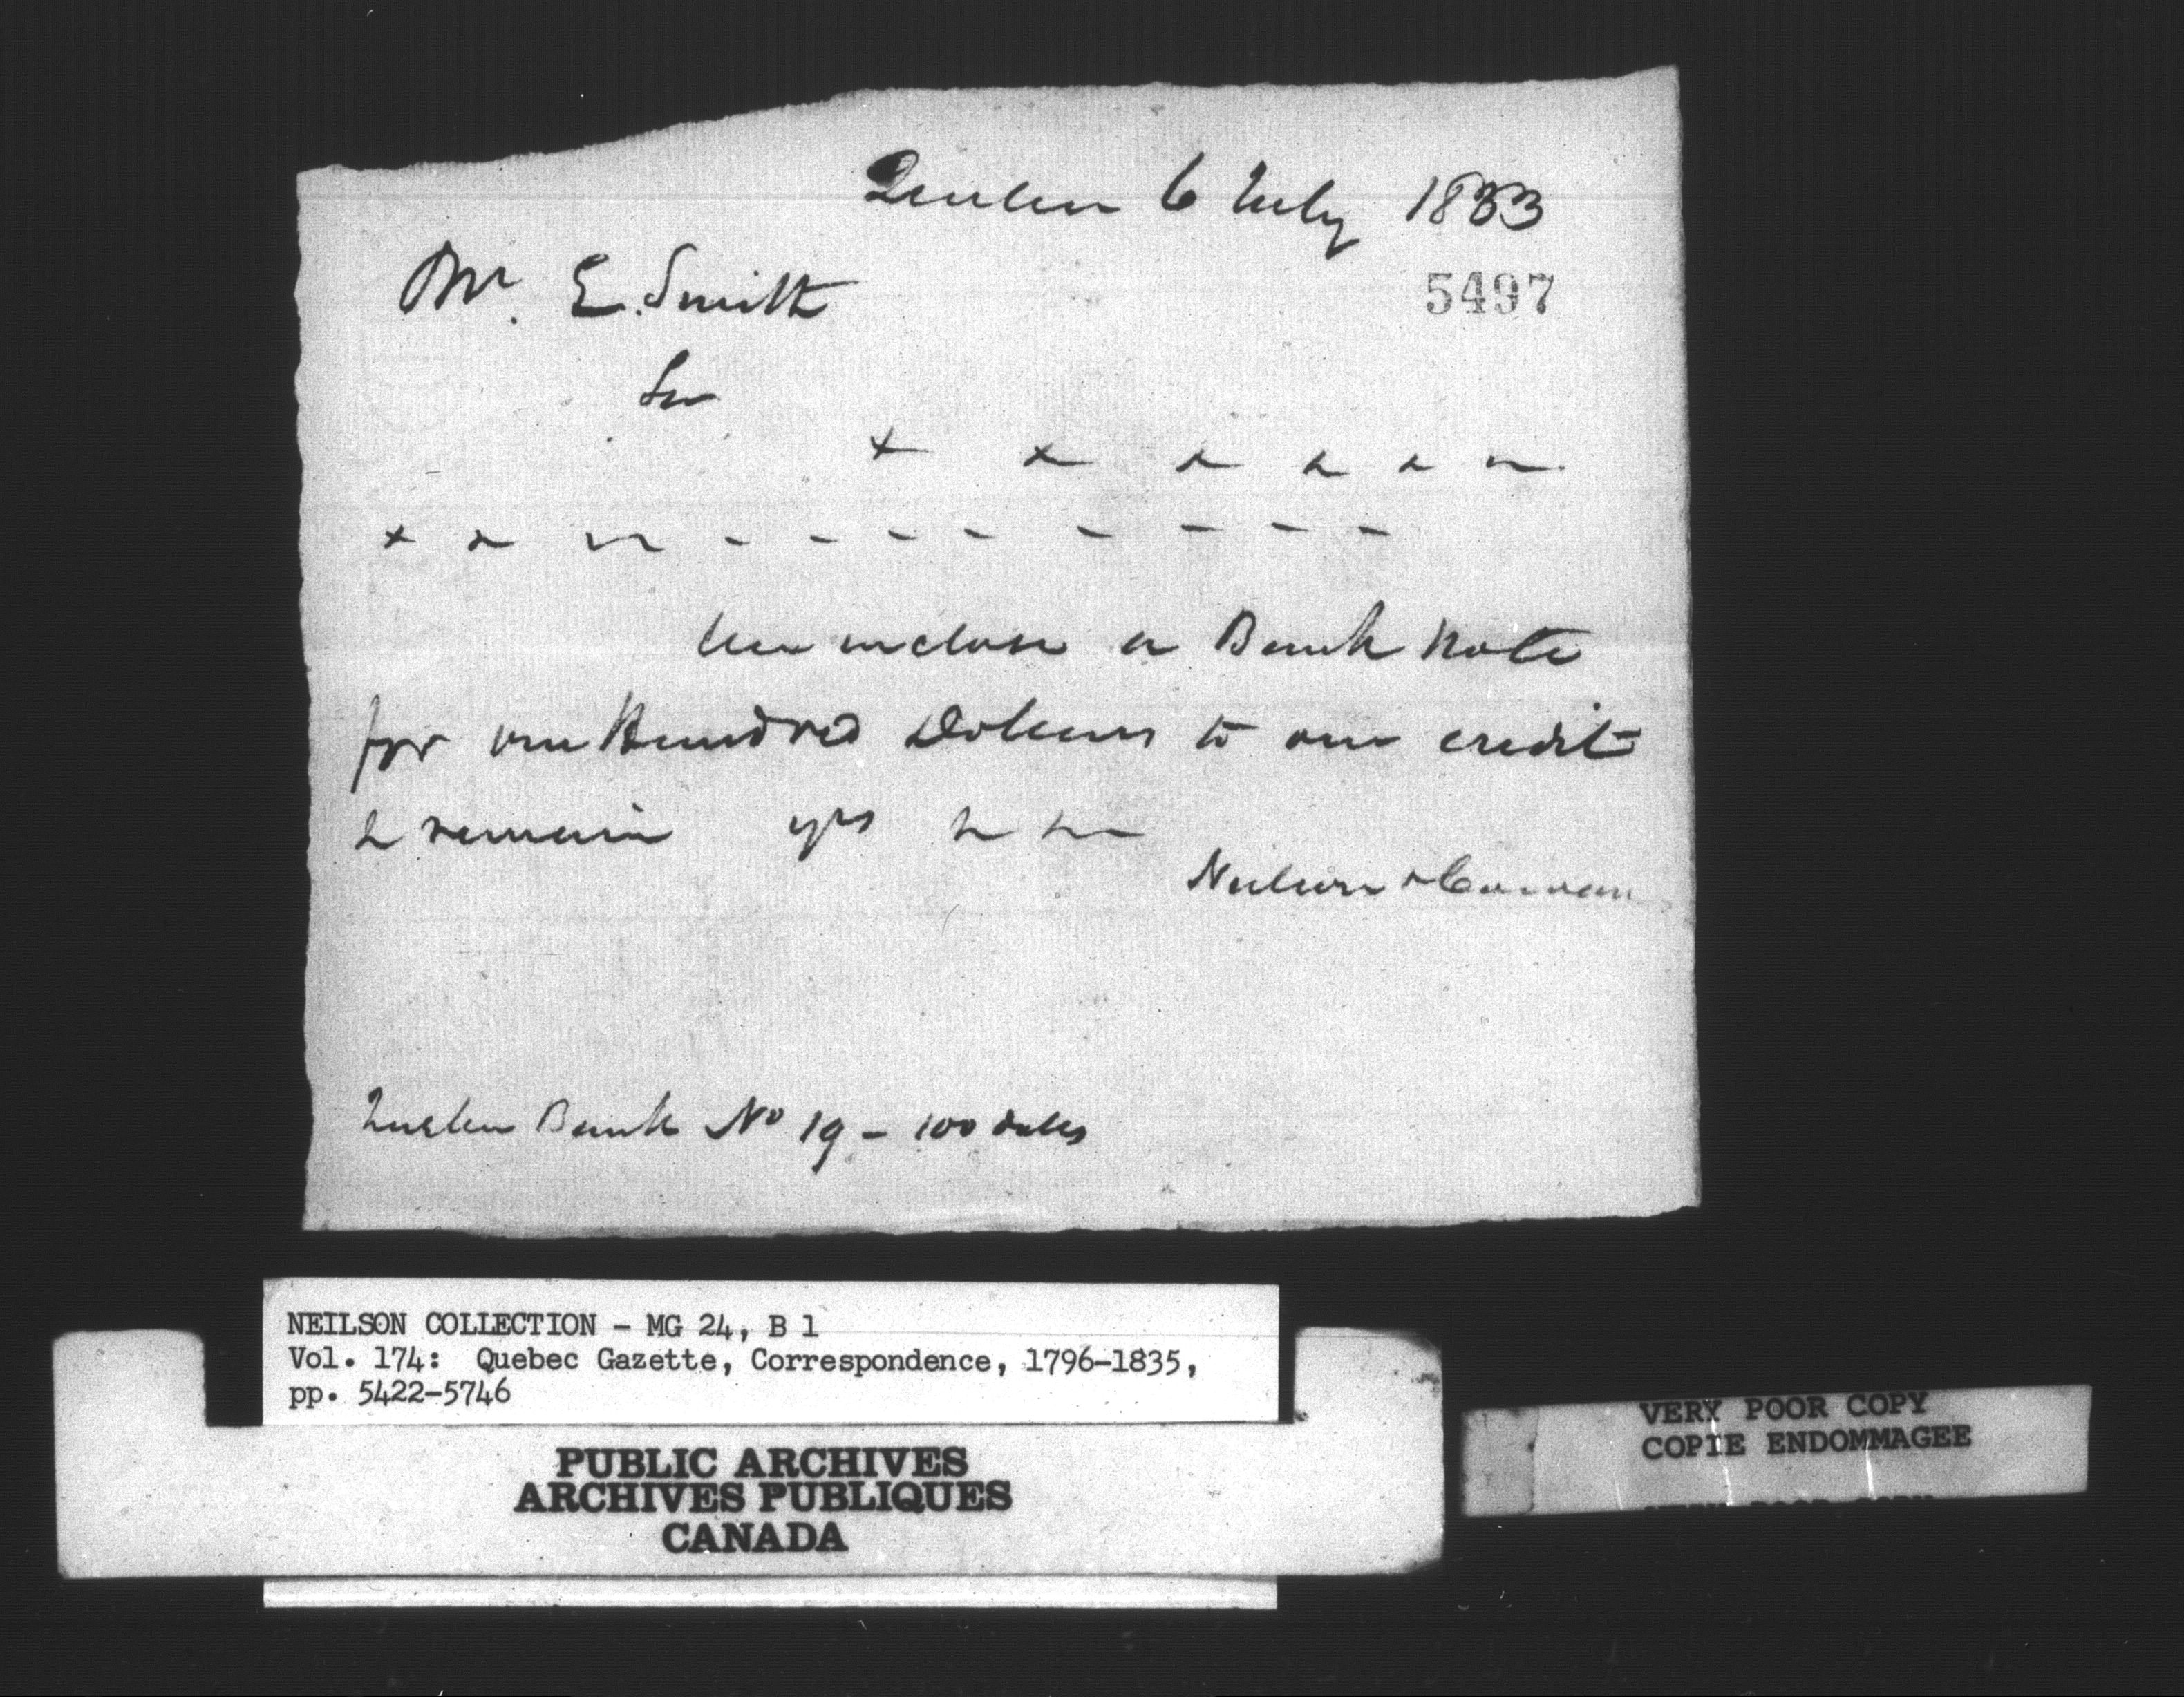 Quebec 6 July 1833
5497
Mr. E. Smith
Sir
x x x x x
x x - - - - - - - -
We inclose a Bank Note
for one Hundred Dollars to our credit
& remain yrs &c &c
Neilson & Cowan
Quebec Bank No 19 - 100 dolls
NEILSON COLLECTION - MG 24, B 1
Vol. 174: Quebec Gazette, Correspondence, 1796-1835,
pp. 5422-5746
PUBLIC ARCHIVES
ARCHIVES PUBLIQUES
CANADA
VERY POOR COPY
COPIE ENDOMMAGEE